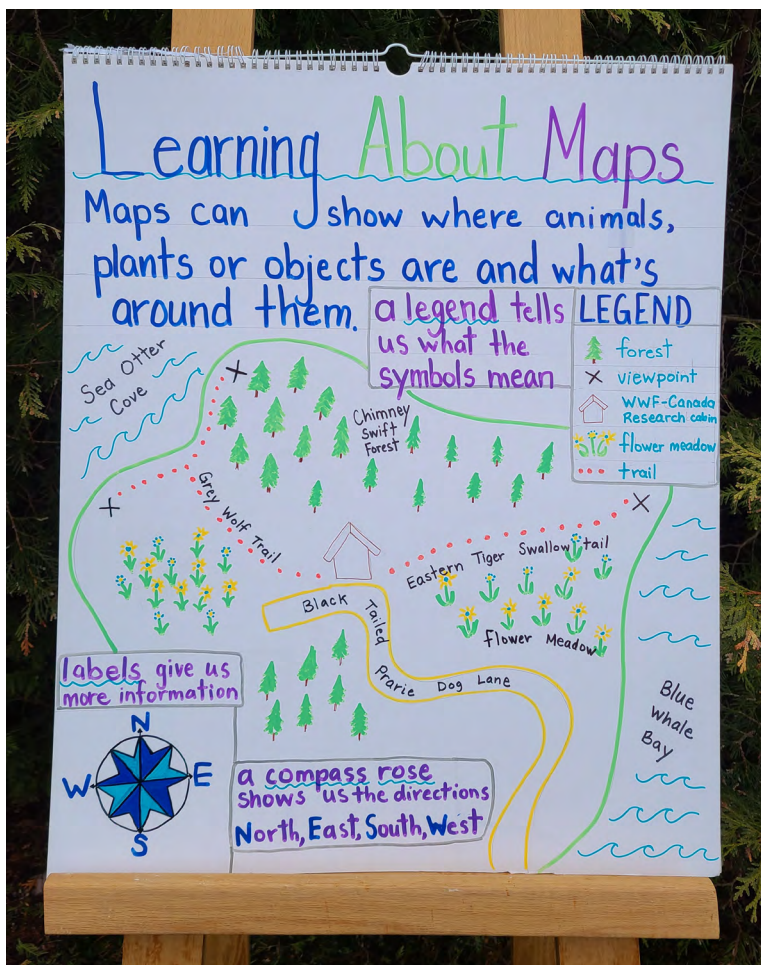 Learning About Maps
Maps can show where animals,
plants or objects are and what's
around them.
a legend tells
us what the
symbols mean
LEGEND
forest
viewpoint
WWF-Canada
Research cabin
flower meadow
trail
Sea Otter
Cove
Chimney
Swift
Forest
Grey Wolf Trail
Eastern Tiger Swallowtail
flower Meadow
Black Tailed
Prarie Dog Lane
Blue
Whale
Bay
labels give us
more information
N
W E
S
a compass rose
shows us the directions
North, East, South, West